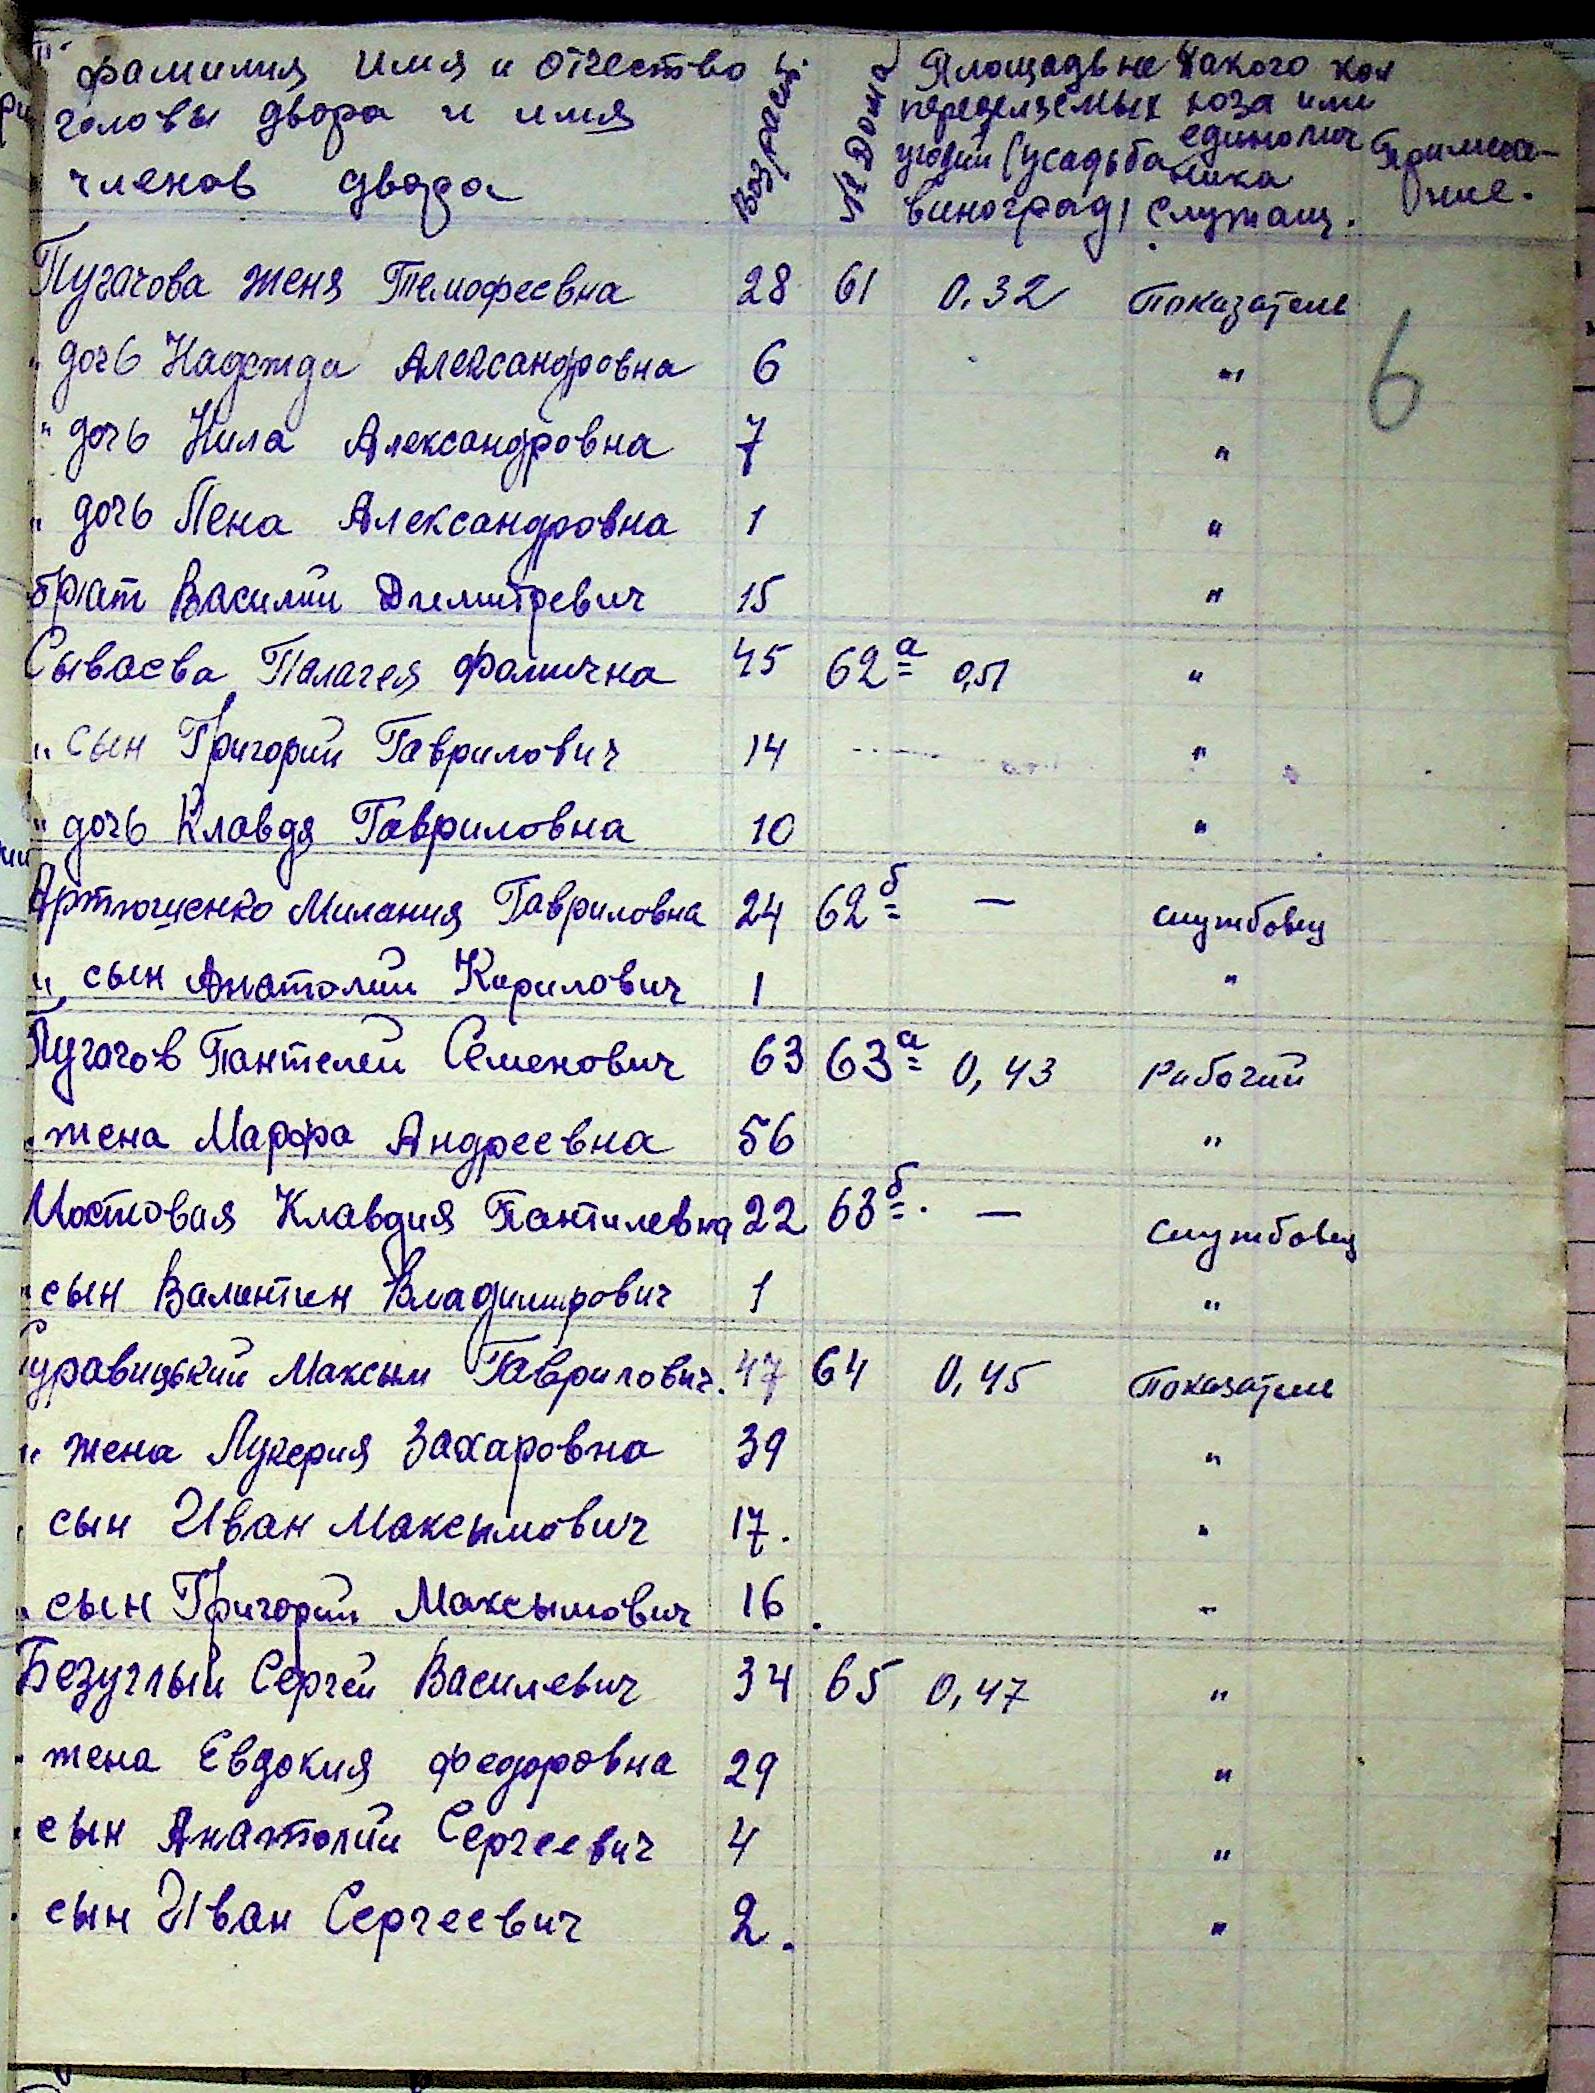 фамилия имя и отчество
головы двора и имя
членов двора
Возраст.
№ Дома
Площадь не
переделяемых
угодий (усадьба
виноград)
Какого кол
хоза или
единолич
ника
служащ.
Примеча-
ние.
6
Пугачова Женя Темофеевна 28 61 0.32 Показатель
" дочь Надежда Александровна 6 "
" дочь Нила Александровна 7 "
" дочь Лена Александровна 1 "
брат Василий Дмемитревич 15 "
Сываева Палагея Фомична 45 62а 0,51 "
" сын Григорий Гаврилович 14 "
" дочь Клавдя Гавриловна 10 "
Артюшенко Милания Гавриловна 24 62б — службовц
" сын Анатолий Кирилович 1 "
Пугачов Пантелей Семенович 63 63а 0,43 Рабочий
жена Марфа Андреевна 56 "
Мостовая Клавдия Пантилевна 22 63б. — службовц
" сын Валентин Владимирович 1 "
Гуравицький Максым Гаврилович. 47 64 0,45 Показатель
" жена Лукерия Захаровна 39 "
сын Иван Максымович 17. "
" сын Григорий Максымович 16 "
Безуглый Сергей Василевич 34 65 0,47 "
жена Евдокия Федоровна 29 "
сын Анатолий Сергеевич 4 "
сын Иван Сергеевич 2. "